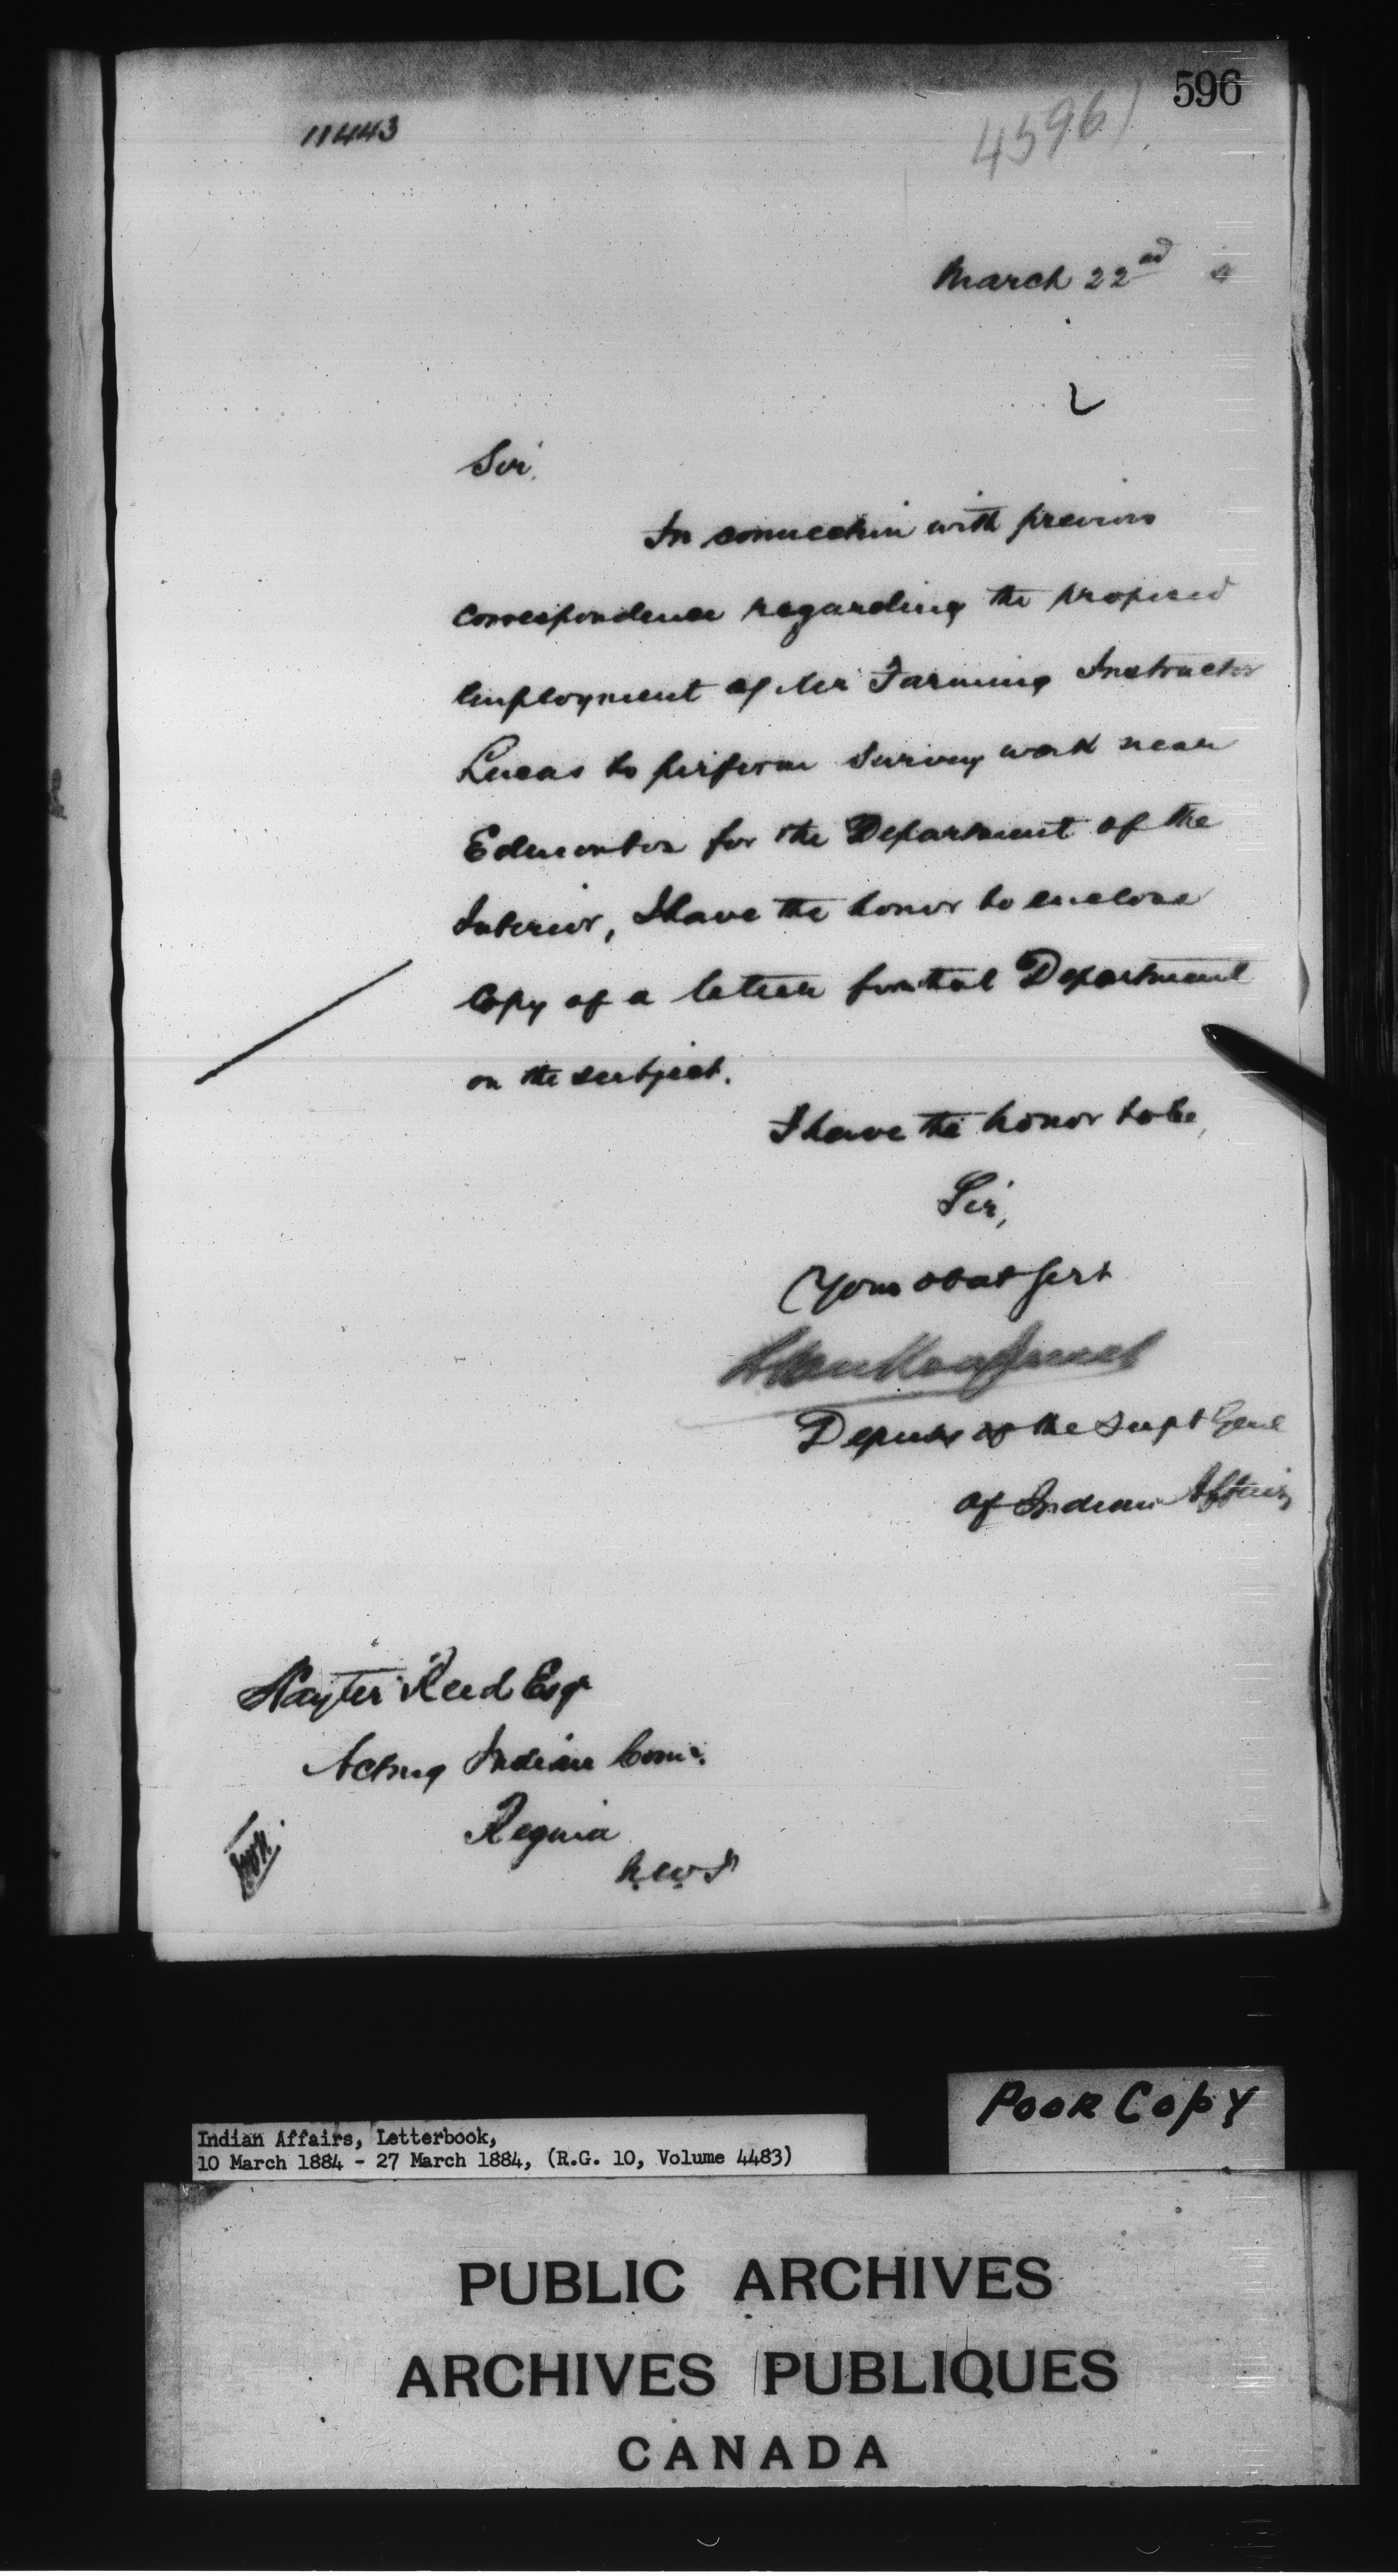 596
11443
4596)
March 22nd 4
Sir,
In connection with previous
correspondence regarding the proposed
employment of Mr Farming Instructor
Lucas to perform survey work near
Edmonton for the Department of the
Interior, I have the honor to enclose
copy of a letter from that Department
on the subject.
I have the honor to be,
Sir,
Your obdt Servt
L VanKoughnet
Deputy of the Supt Genl
of Indian Affairs
Hayter Reed Esqr
Acting Indian Comr.
Regina
N.W.T
Poor Copy
Indian Affairs, Letterbook,
10 March 1884 - 27 March 1884, (R.G. 10, Volume 4483)
PUBLIC ARCHIVES
ARCHIVES PUBLIQUES
CANADA